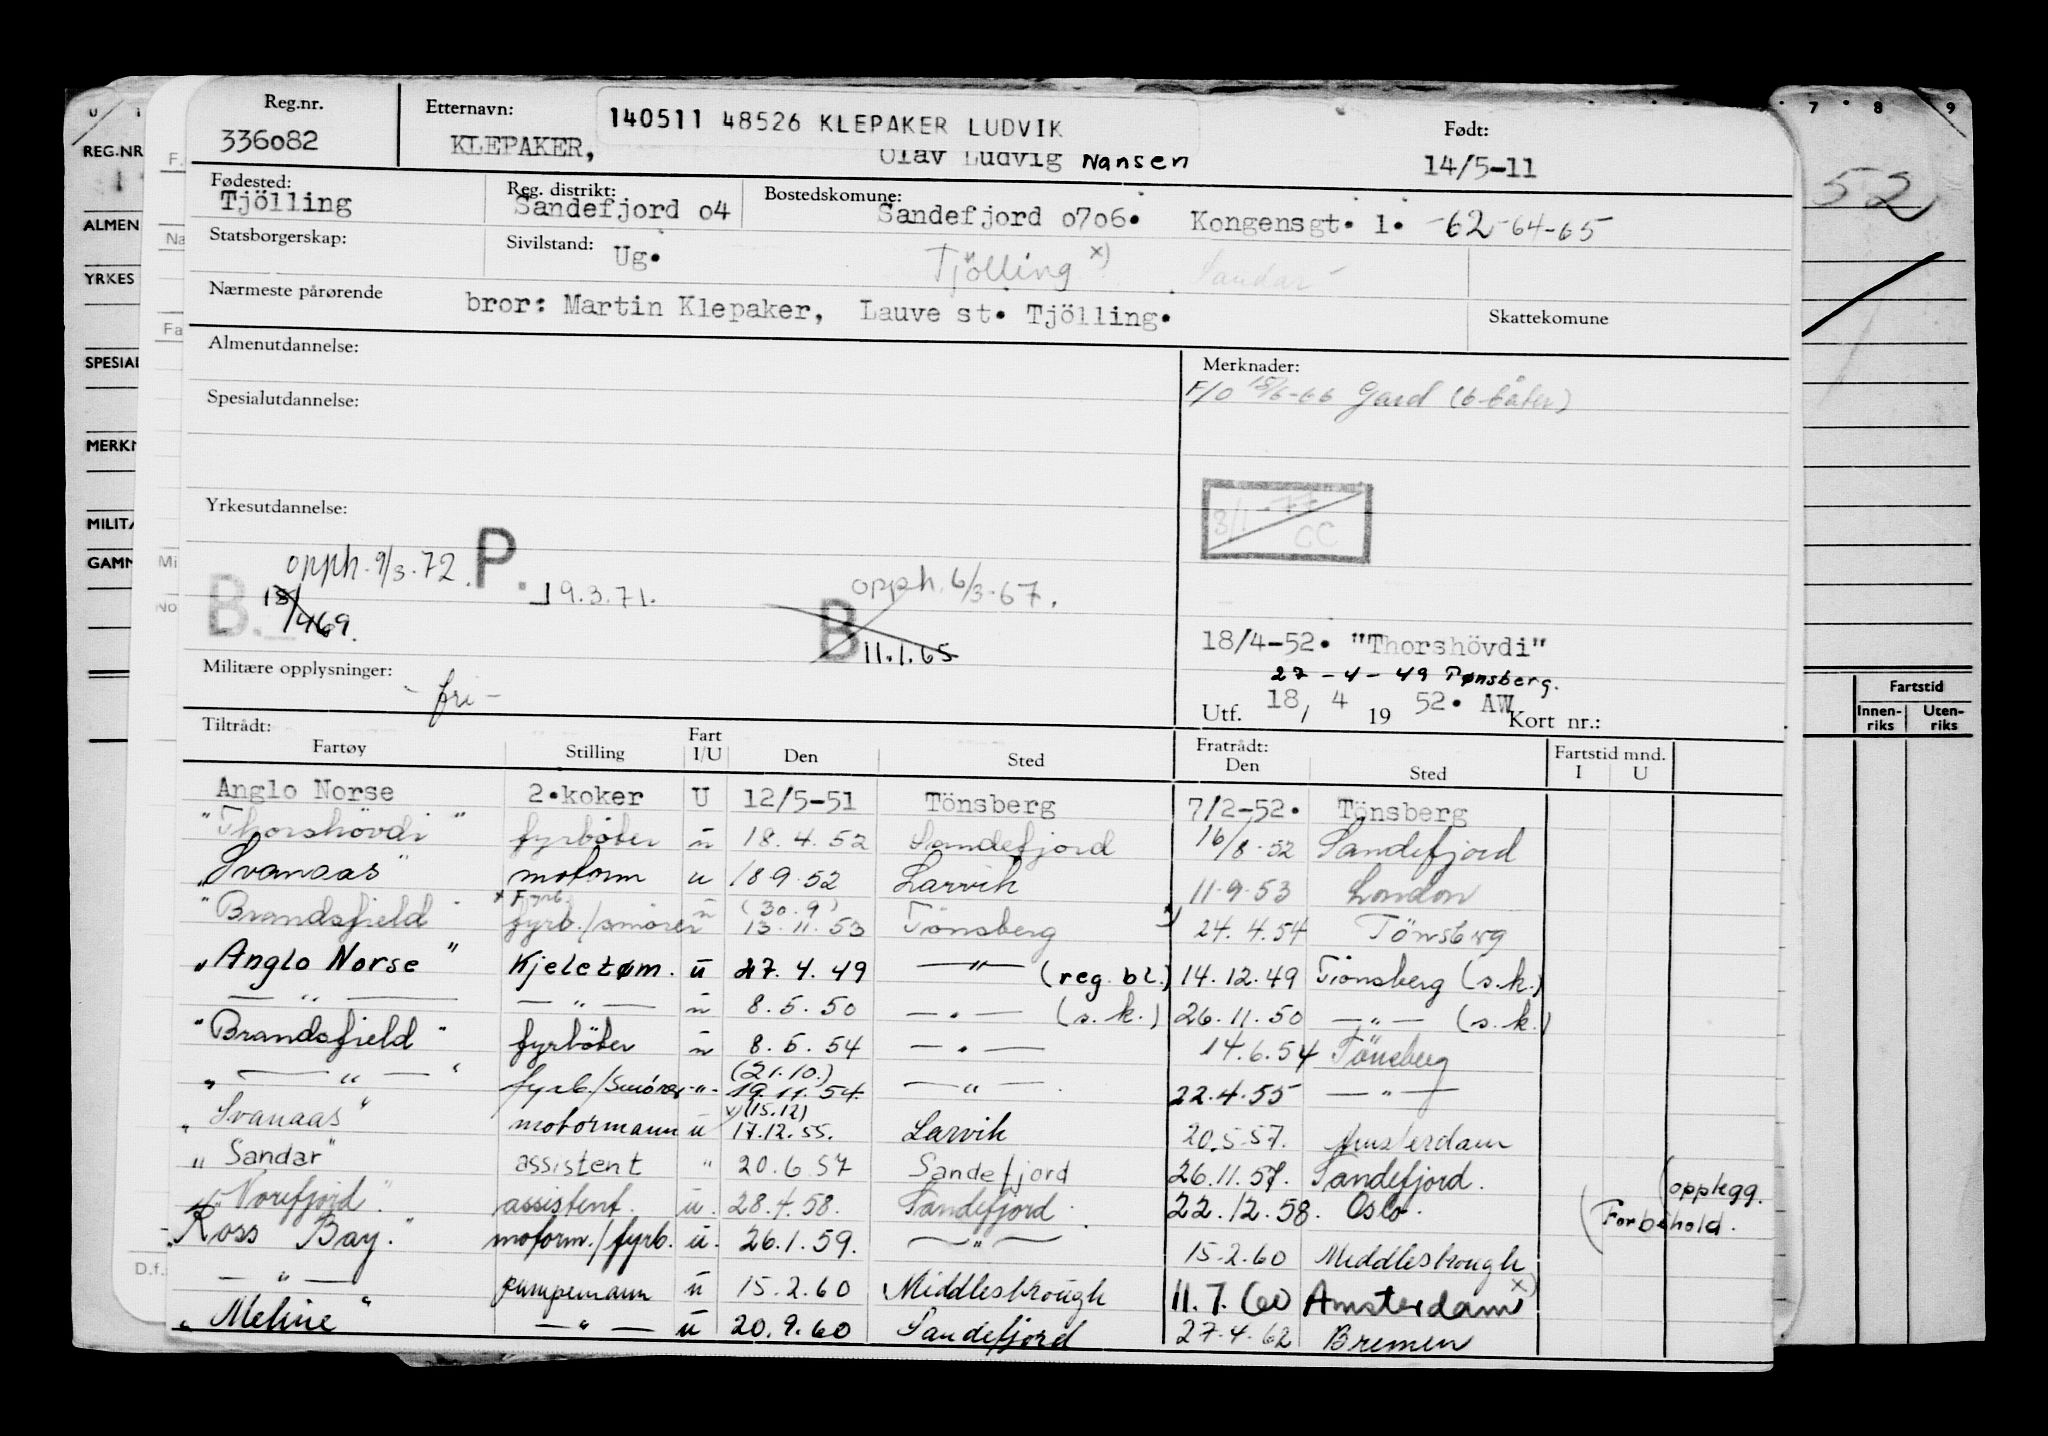 Reg.nr. Etternavn: 140511 48526 KLEPAKER LUDVIK Født:
336082 KLEPAKER, Olav Ludvig Nansen 14/5-11
Fødested: Reg. distrikt: Bostedskomune:
Tjölling Sandefjord o4 Sandefjord o7o6. Kongensgt. 1. -62-64-65
Statsborgerskap: Sivilstand: Ug. Tjölling x) Sandar
Nærmeste pårørende bror: Martin Klepaker, Lauve st. Tjölling. Skattekomune
Almenutdannelse: Merknader:
F/O 15/6-66 Gard (6 båter)
Spesialutdannelse:
3/1-77
CC
Yrkesutdannelse:
opph. 9/3.72. P. 19.3.71. opph. 6/3-67.
B. 13/1469. B 11.1.65
18/4-52. "Thorshövdi"
27-4-49 Tønsberg.
Militære opplysninger: - fri -
Utf. 18/ 4 19 52. AW Kort nr.:
Tiltrådt: Fratrådt: Fartstid mnd.
Fartøy Stilling Fart I/U Den Sted Den Sted I U
Anglo Norse 2.koker U 12/5-51 Tönsberg 7/2-52. Tönsberg
"Thorshövdi" fyrböter u 18.4.52 Sandefjord 16/8-52 Sandefjord
"Svanaas" motorm u 18.9.52 Larvik 11.9.53 London
x Fyrb. (30.9)
"Brandsfield" fyrb./smører u 13.11.53 Tönsberg x) 24.4.54 Tönsberg
"Anglo Norse" Kjeletøm. u 27.4.49 —"— (reg. bl.) 14.12.49 Tönsberg (s.k.)
— " — — " — u 8.5.50 — " — (s.k.) 26.11.50 — " — (s.k.)
"Brandsfield" fyrböter u 8.5.54 — " — 14.6.54 Tönsberg
(21.10.)
" — " — " fyrb./Smörer -"- 19.11.54 — " — 22.4.55 — " —
x) (15.12)
"Svanaas" motormann u 17.12.55. Larvik 20.5.57. Amsterdam
"Sandar" assistent " 20.6.57 Sandefjord 26.11.57. Sandefjord. (opplegg.
"Norefjord" assistent. u. 28.4.58. Sandefjord. 22.12.58. Oslo. (Forbehold.
"Ross Bay." motorm./fyrb. u. 26.1.59. — " — 15.2.60 Middlesbrough
— " — pumpemann u 15.2.60 Middlesbrough 11.7.60 Amsterdam x)
"Meline" — " — u 20.9.60 Sandefjord 27.4.62 Bremen
REG.NR
ALMEN
YRKES
SPESIAL
MERKN
MILITÆ
GAMM
F.
Na
Fa
Mi
No
D.f.
7 8 9
52
Fartstid
Innen-riks Uten-riks